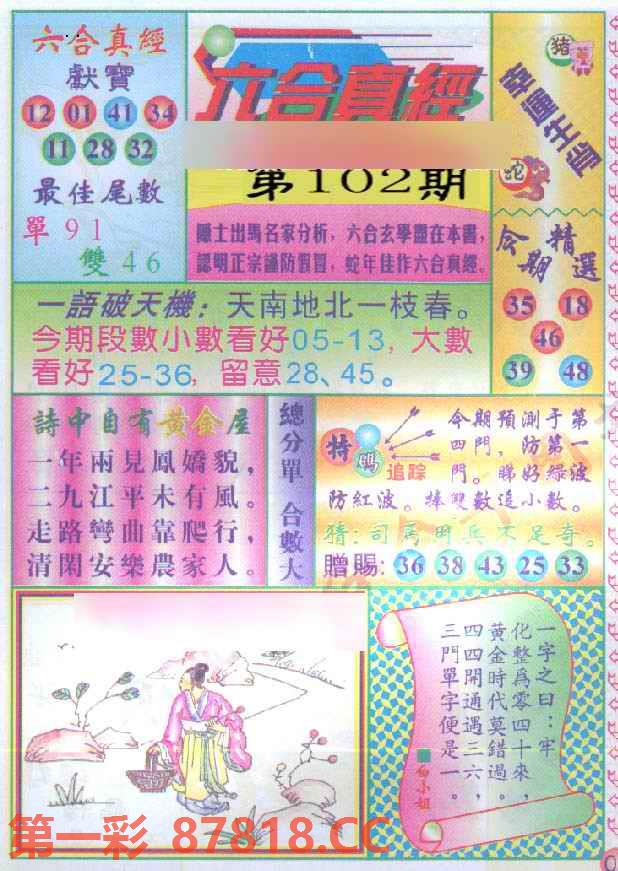 六合真經
獻寶
12 01 41 34
11 28 32
最佳尾數
單 9 1
雙 4 6
六合真經
第102期
隱士出馬名家分析，六合玄學盡在本書，
認明正宗謹防假冒，蛇年佳作六合真經。
猪
蛇
今期精選
35 18
46
39 48
一語破天機：天南地北一枝春。
今期段數小數看好05-13，大數
看好25-36，留意28、45。
詩中自有黃金屋
一年兩見鳳嬌貌，
二九江平未有風。
走路彎曲靠爬行，
清閑安樂農家人。
總分單 合數大
特碼
追踪
今期預測于第
四門，防第一
門。睇好綠波
防紅波。捧雙數追小數。
猜：司馬用兵不足奇。
贈賜：36 38 43 25 33
一字之曰：牢
化整爲零四十來，
黃金時代莫錯過。
四四開通遇三六，
三門單字便是一。
白小姐
第一彩 87818.CC